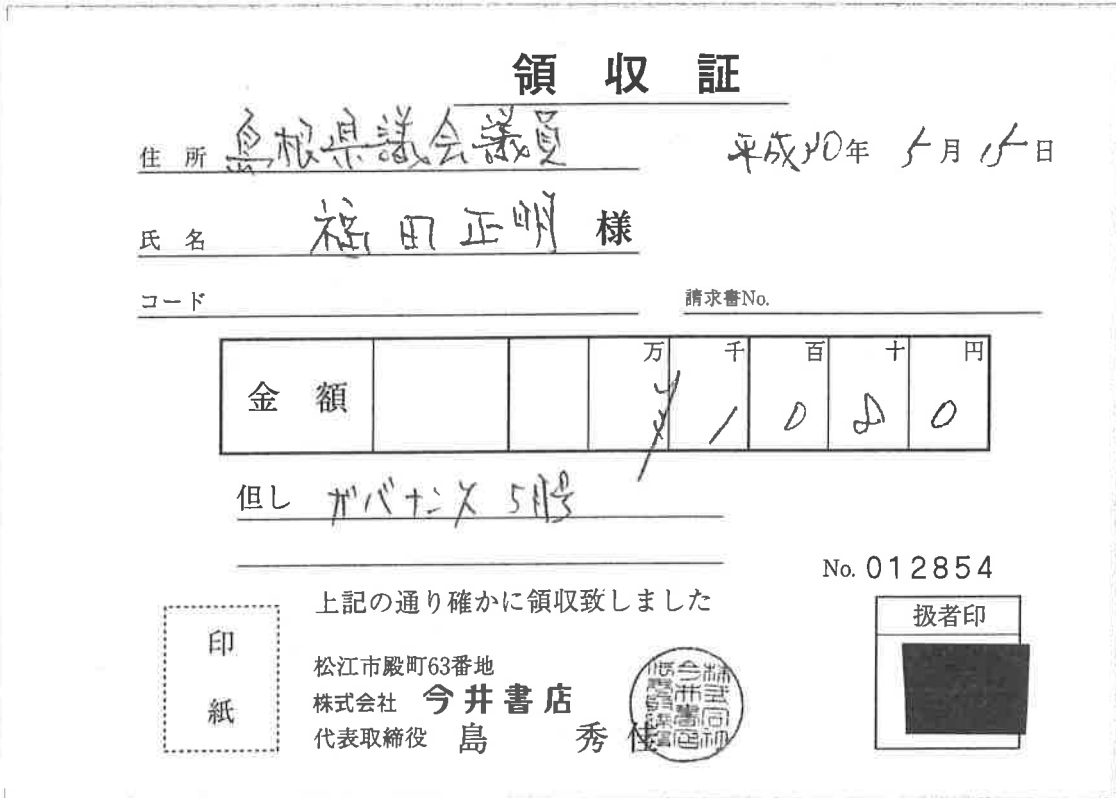 領収証
住所 島根県議会議員
平成30年 5月15日
氏名 福田正明 様
コード
請求書No.
万 千 百 十 円
金額 ¥1080
但し ガバナンス 5月号
No. 012854
上記の通り確かに領収致しました
扱者印
印紙
松江市殿町63番地
株式会社 今井書店
代表取締役 島 秀佳